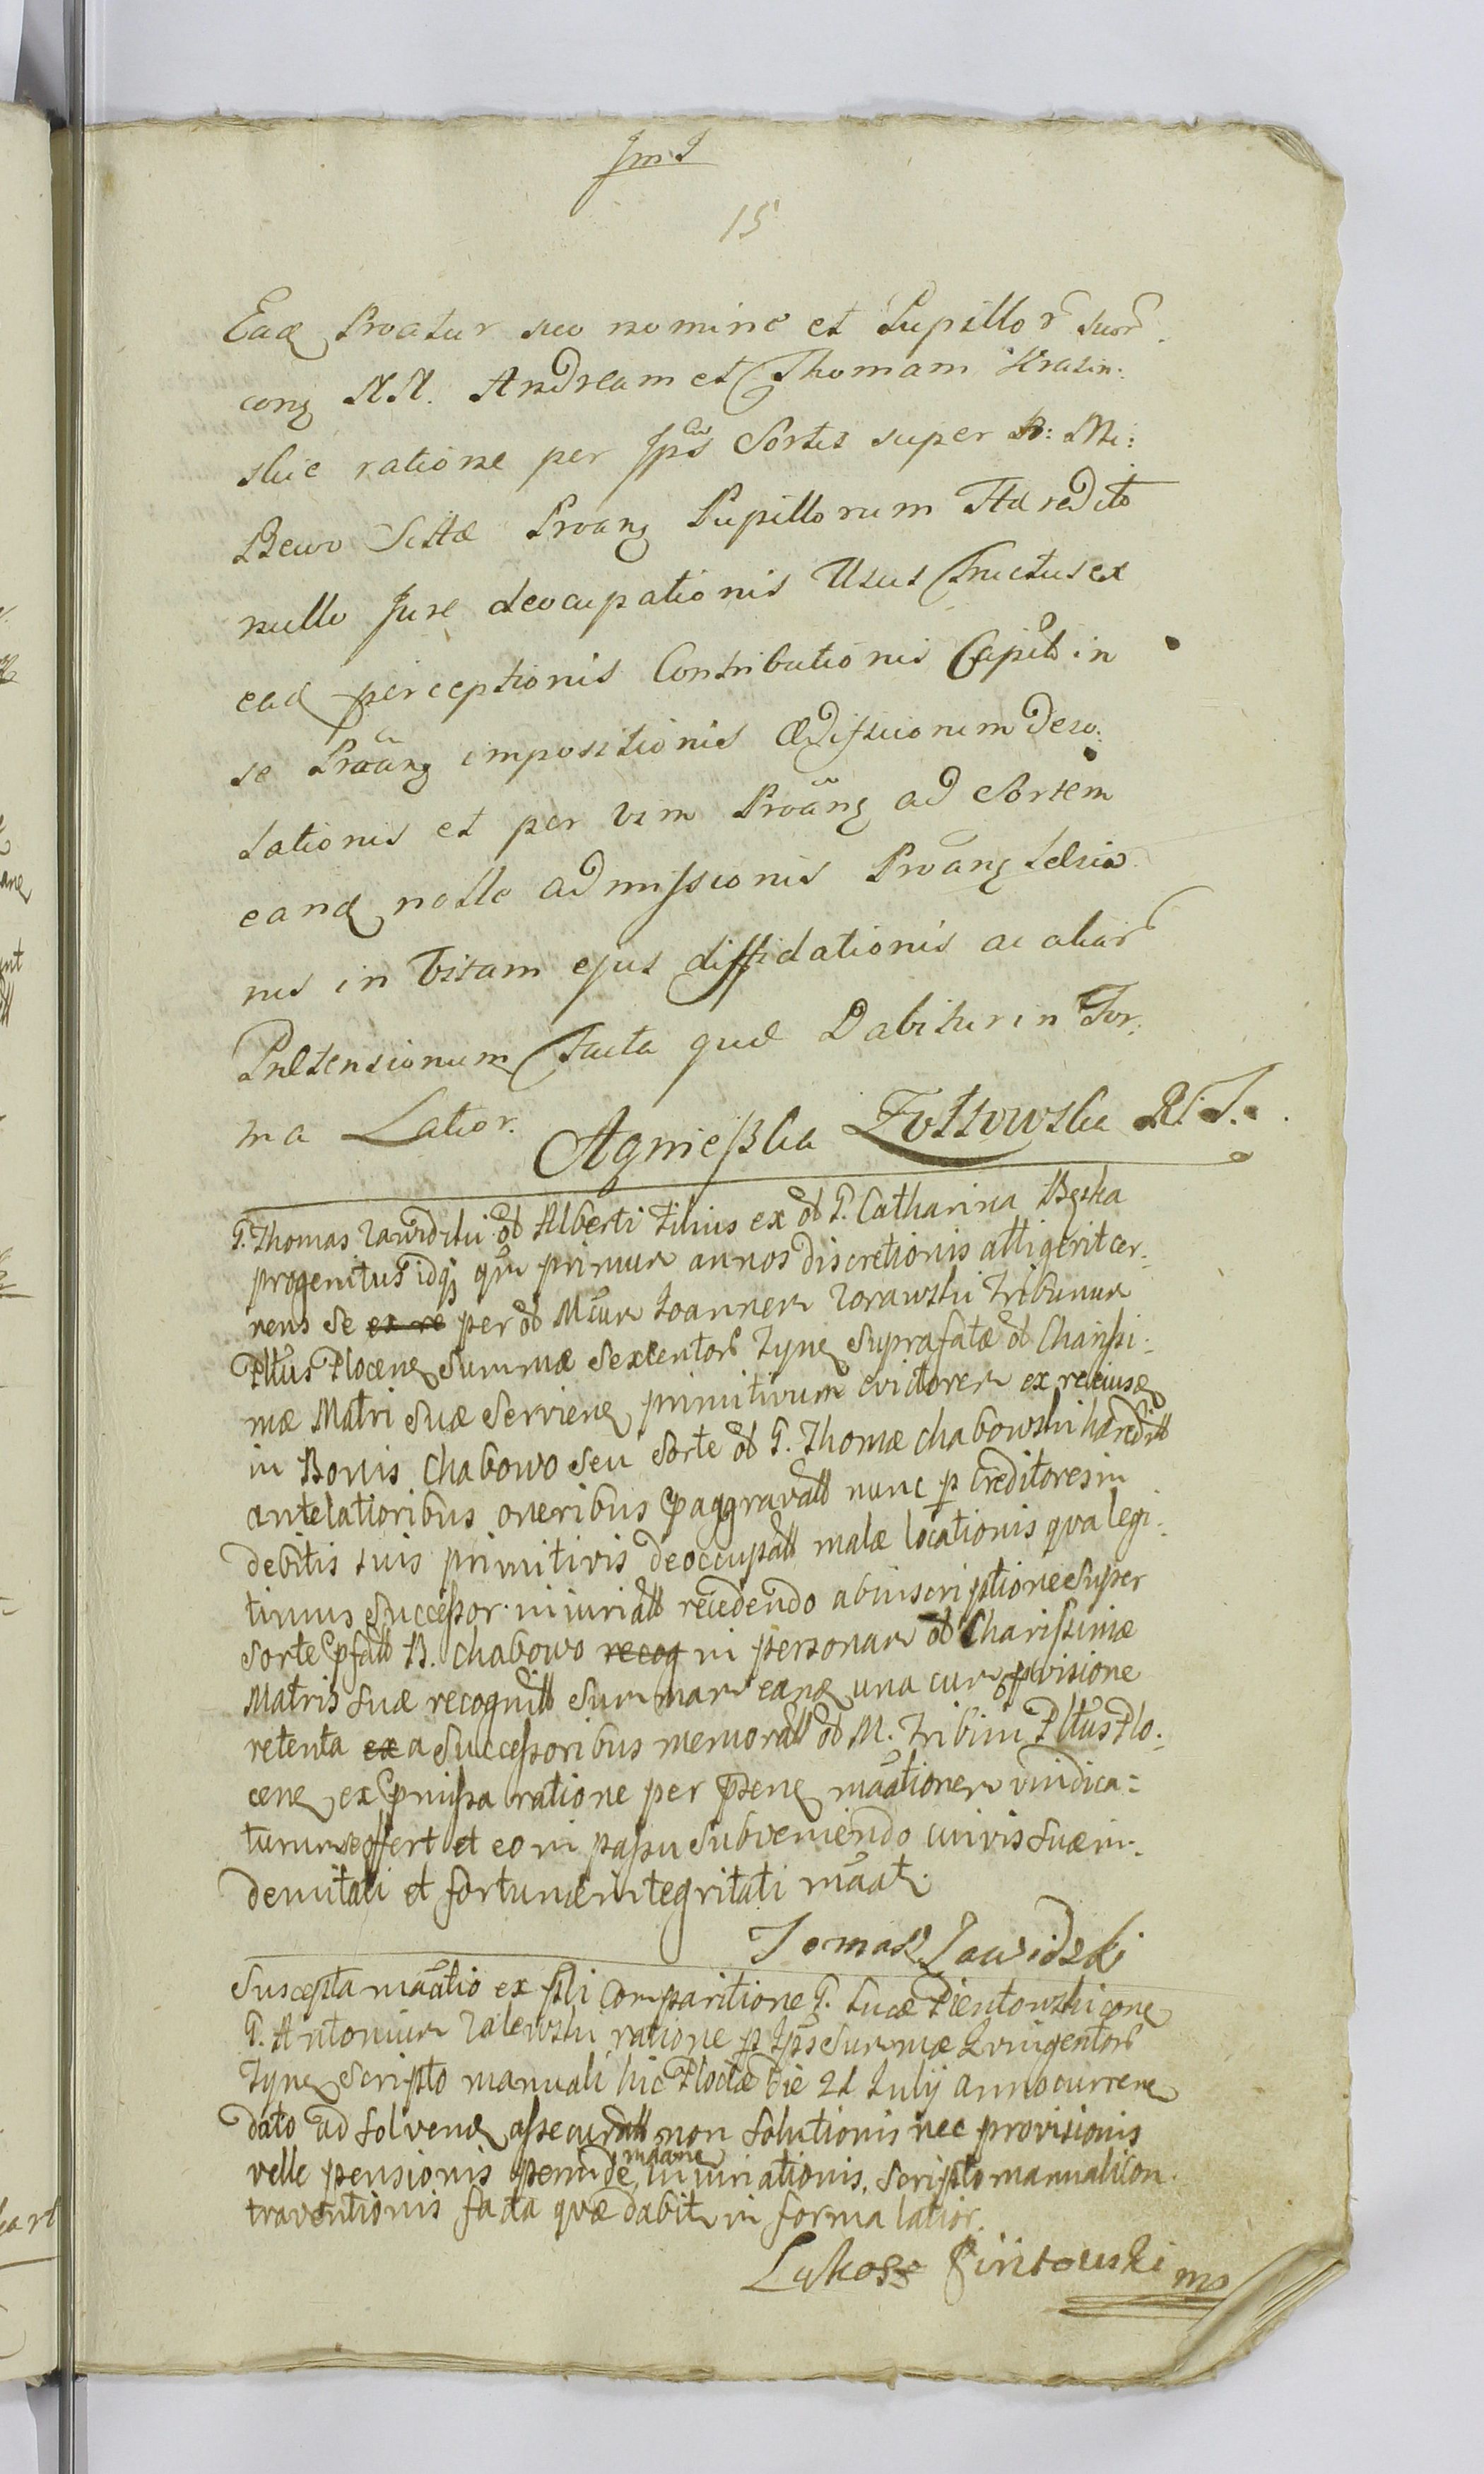 Jm J
15
Ead Proatur suo nomine et Pupillor suor
cong NN. Andream et Thomam Krasin:
skie ratione per Jps Sortis super B: Mi:
Bewo Sittæ Proang Pupillorum Hæredito
nullo Jure deocupationis Usus Fructus ex
ead perceptionis Contributionis Capit in
se Proang impositionis Ædificiorum devo:
tationis et per vim Proang ad Sortem
eand nolle admissionis Proang
nis in Vitam ejus diffidationis ac aliar
Prætensionum Facta quæ Dabitur in For:
ma Latior. Agnießka Zołtowska R.T.
G. Thomas Zawidzki ol Alberti Filius ex ol G. Catharina Bęska
progenitus idq qm primum annos discretionis attigerit cer:
nens se ex re per ol Mcum Joannem Zorawski Tribunum
Pltus Plocene Summæ Sexcentor Tyne Suprafatæ ol Charissi:
mæ Matri Suæ Serviene primitivum evictorem ex re ejusq
in Bonis Chabowo seu Sorte ol G. Thomæ Chabowski hæredit
antelatioribus oneribus præaggravatt nunc p Creditores in
debitis suis primitivis deoccupatt malæ locationis qva legi:
timus Successor iniuriatt recedendo ab inscriptione Super
Sorte præfatt B. Chabowo recog in personam ol Charissimæ
Matris Suæ recognitt Summam eand una cum provisione
retenta ex a Successoribus memoratt ol M. Tribuni Pltus Plo:
cene ex præmissa ratione per præsene maationem vindica=
turum offert et eo in passu Subveniendo cuivis Suæ in:
demnitati et fortunæ integritati maat.
Tomasz Zawidzki
Suscepta maatio ex psli Comparitione G. Lucæ Pientowski cone
G. Antonium Zalewski ratione p Jps Summæ Qvingentor
Tyne Scripto manuali hic Plociæ die 21 Julij anno currene
dato ad Solvend assecuratt non Solutionis nec provisionis
velle pensionis perinde maane iniuriationis, Scripto manuali con:
traventionis facta quæ dabitr in forma latior.
Lukosz Pintowski mp